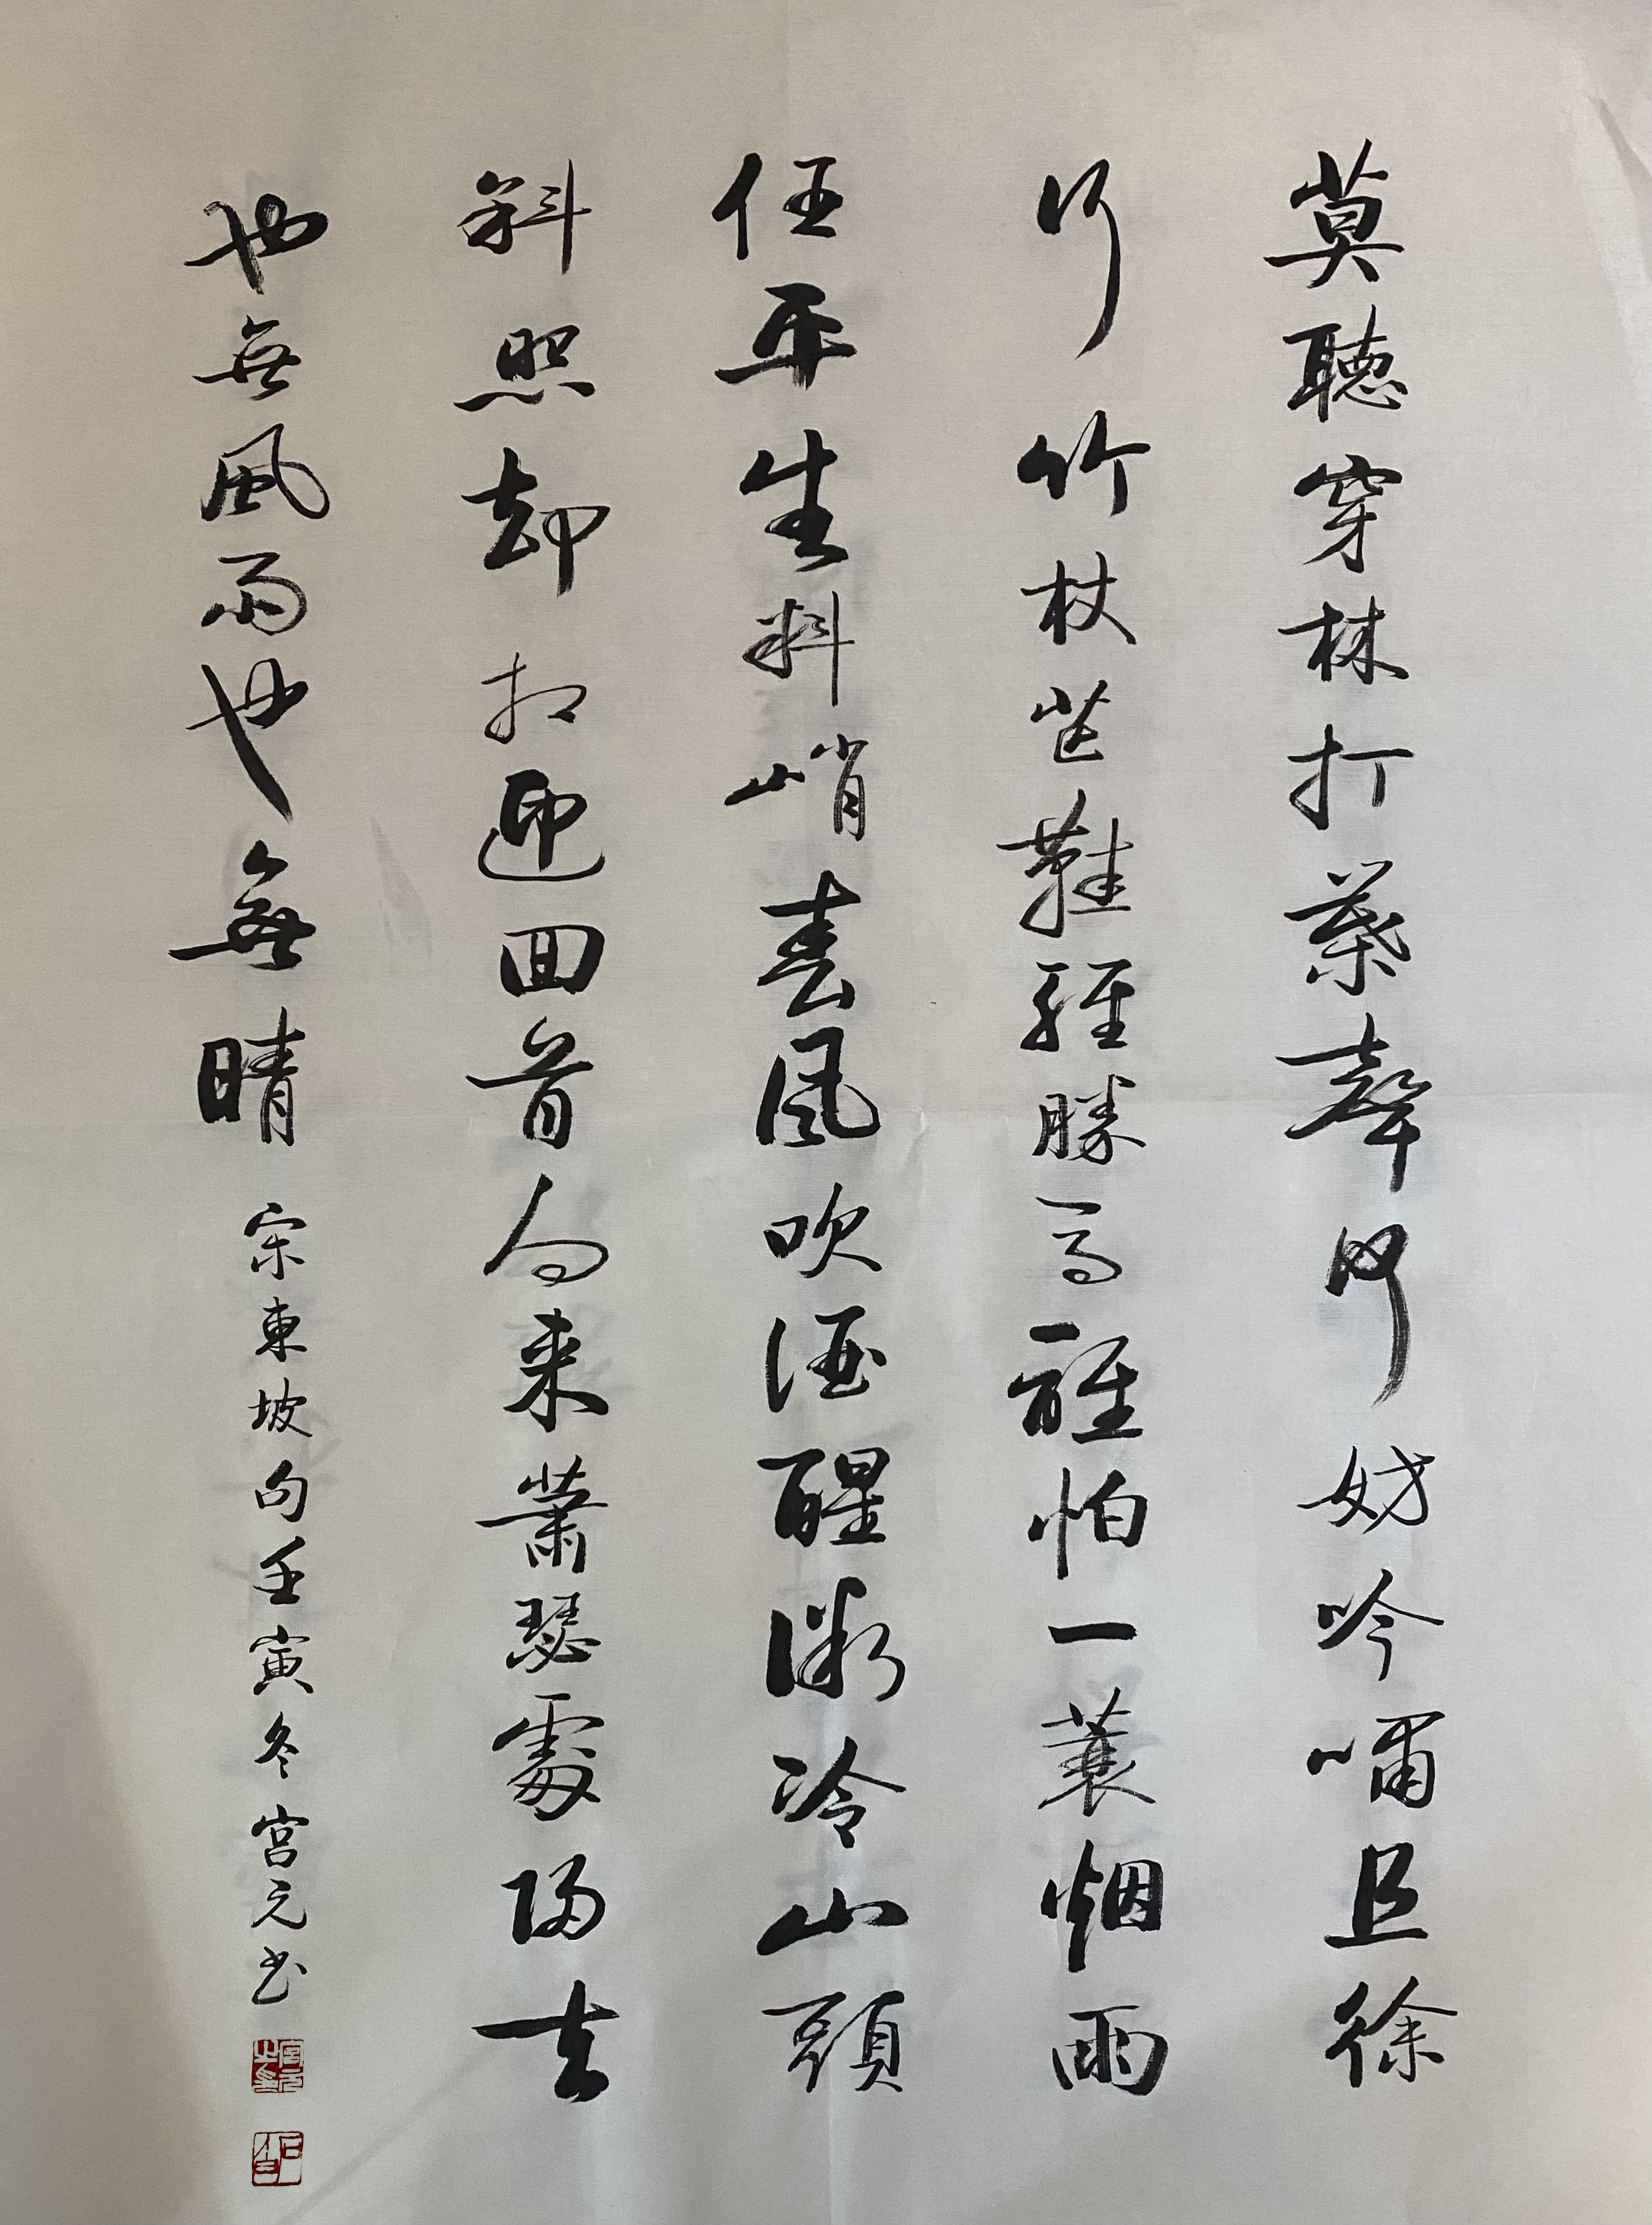 莫聽穿林打葉聲何妨吟嘯且徐
行竹杖芒鞋輕勝馬誰怕一蓑烟雨
任平生料峭春風吹酒醒微冷山頭
斜照却相迎回首向来蕭瑟處歸去
也無風雨也無晴 宋東坡句壬寅冬宫元书